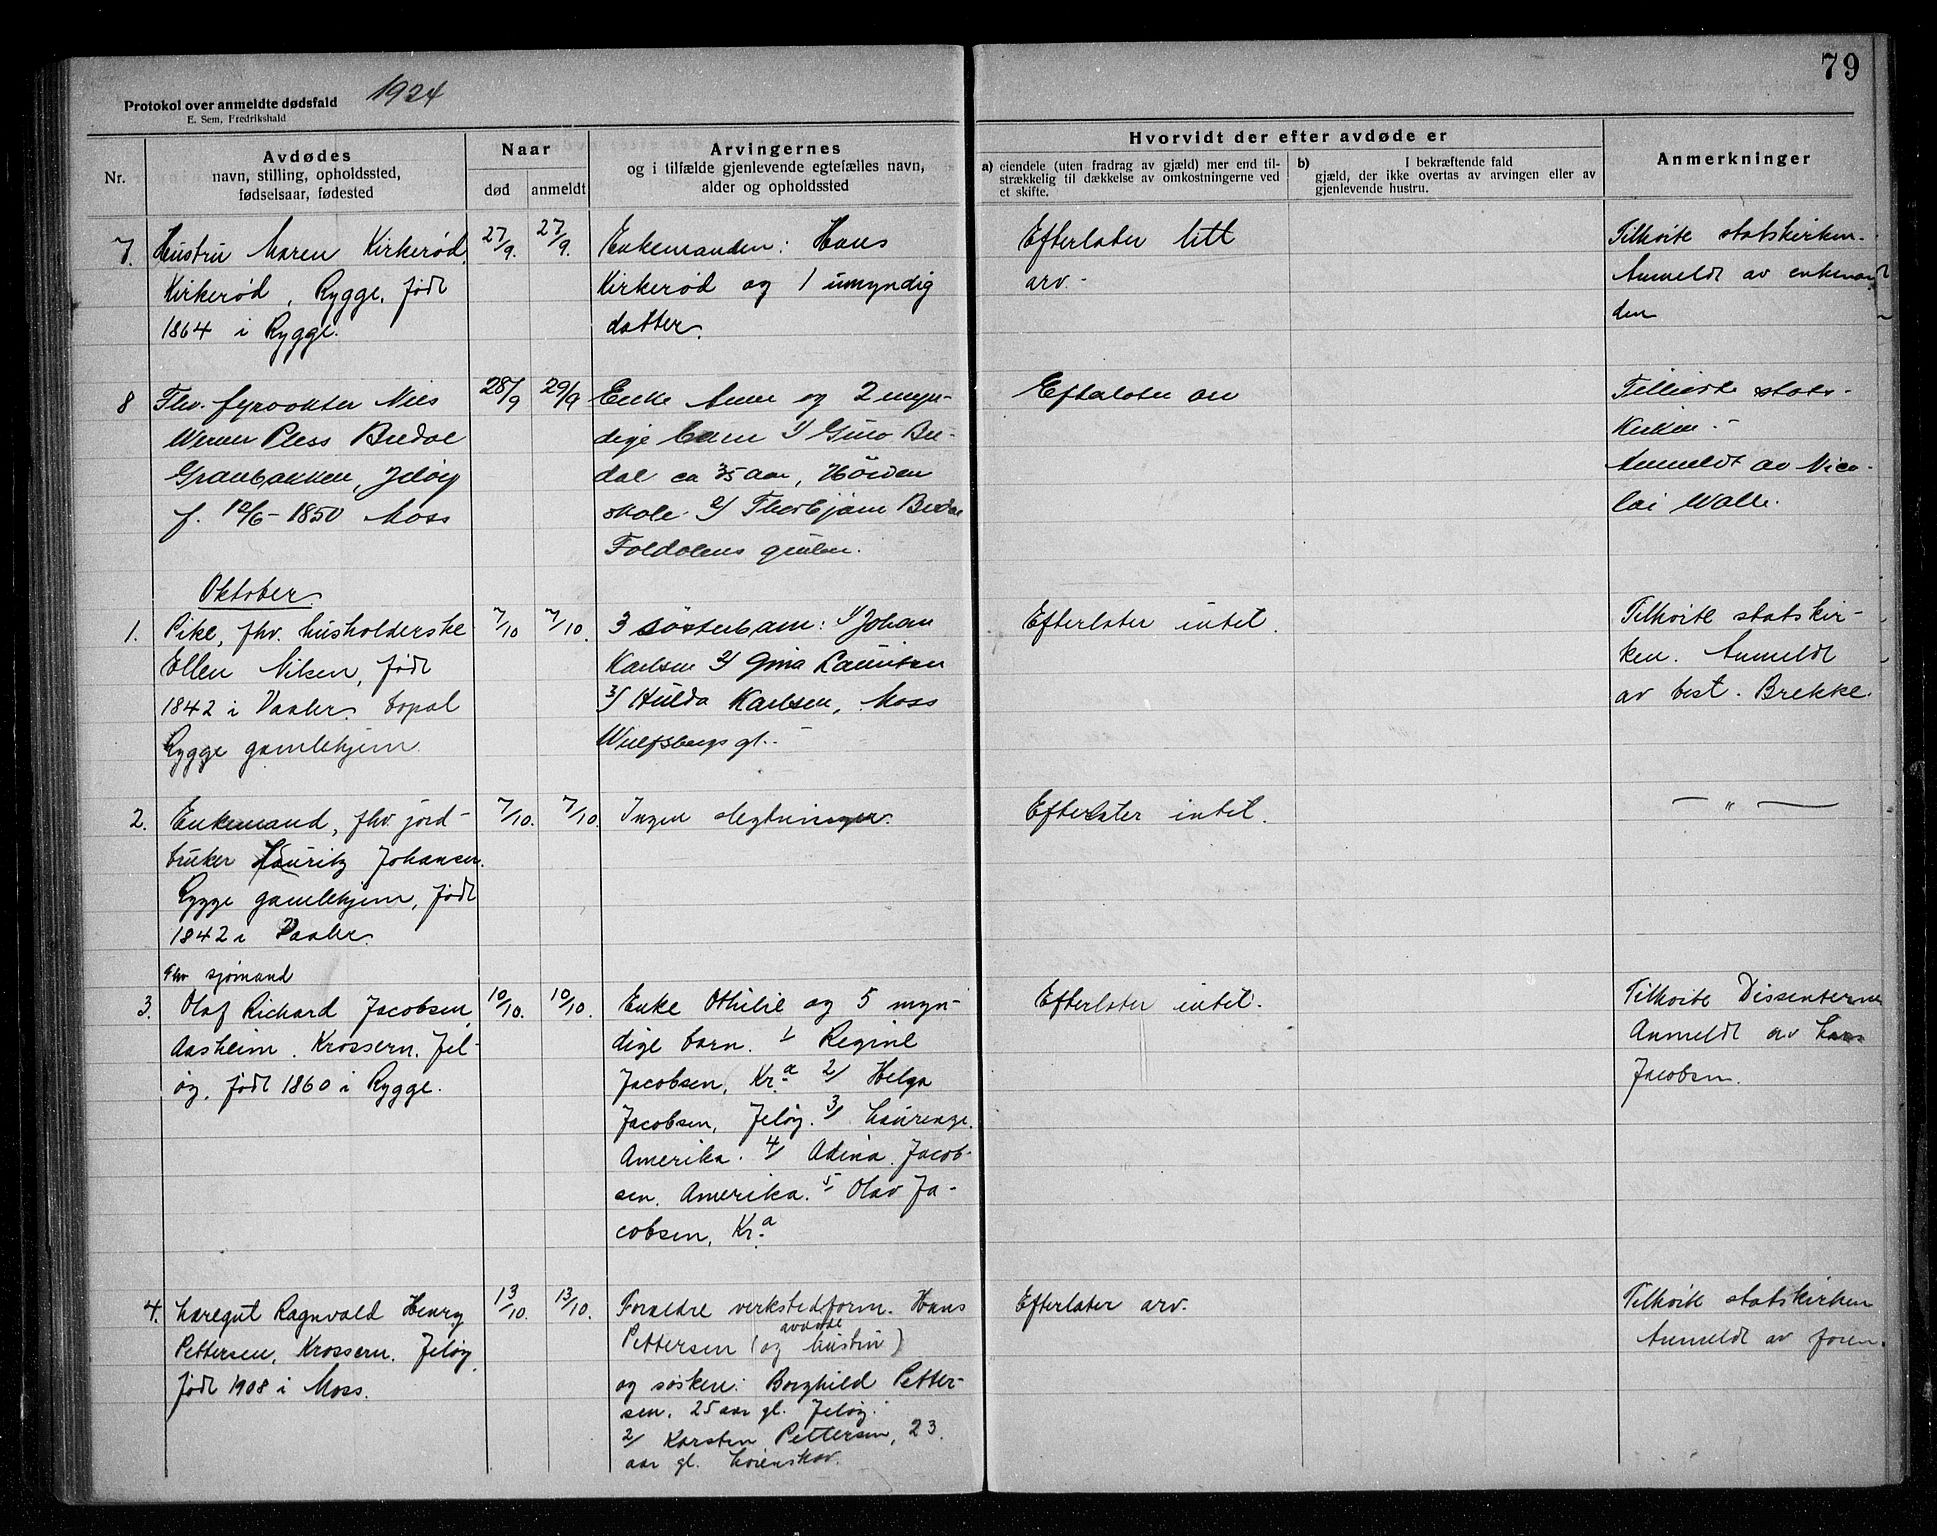 79
1924
Protokol over anmeldte dødsfald
E. Sem, Fredrikshald
Nr.
Avdødes
navn, stilling, opholdssted,
fødselsaar, fødested
Naar
død
anmeldt
Arvingernes
og i tilfælde gjenlevende egtefælles navn,
alder og opholdssted
Hvorvidt der efter avdøde er
a) eiendele (uten fradrag av gjæld) mer end til-
strækkelig til dækkelse av omkostningerne ved
et skifte.
b) I bekræftende fald
gjæld, der ikke overtas av arvingen eller av
gjenlevende hustru.
Anmerkninger
7.
Hustru Maren Kirkerød,
Kirkerød, Rygge, født
1864 i Rygge.
27/9.
27/9.
Enkemanden: Hans
Kirkerød og 1 umyndig
datter.
Efterlater litt
arv.
Tilhøite statskirken.
Anmeldt av enkeman
den
8
Fhv. fyrvokter Nils
Werner Pless Bredal
Granbakken, Jeløy
f. 12/6-1850 Moss
28/9
29/9
Enke Anna og 2 myn-
dige barn 1/ Bre-
dal ca 35 aar,
skole 2/ Thorbjørn Bredal
Foldalens gruber.
Efterlater arv
Tilhørte stats-
kirken.-
Anmeldt av Nico-
lai Walle.
Oktober.
1.
Pike, fhv. husholderske
Ellen Nilsen, født
1842 i Vaaler. bopæl
Rygge gamlehjem
7/10
7/10.
3 søsterbarn: 1/ Johan
Karlsen 2/ Gina Lauritsen
3/ Hulda Karlsen, Moss
Wulfsbergs gt.-
Efterlater intet.
Tilhøite statskir-
ken. Anmeldt
av best. Brekke.
2.
Enkemand, fhv. jord-
bruker Lauritz Johansen.
Rygge gamlehjem, født
1842 i Vaaler.
7/10.
7/10.
Ingen slegtninger.
Efterlater intet.
— " —
Fhv sjømand
3.
Olaf Richard Jacobsen,
Aasheim. Krossern. Jel-
øy, født 1860 i Rygge.
10/10.
10/10.
Enke Othilie og 5 myn-
dige barn. 1/ Regine
Jacobsen, Kr.a 2/ Helga
Jacobsen, Jeløy. 3/ Laurenze.
Amerika. 4/ Adina. Jacob-
sen. Amerika. 5/ Olav Ja-
cobsen, Kr.a
Efterlater intet.
Tilhøite Dissenterne
Anmeldt av
Jacobsen.
4.
Læregut Ragnvald Henry
Pettersen, Krossern. Jeløy,
født 1908 i Moss.
13/10.
13/10.
Forældre verkstedsform. Hans
avdøde
Pettersen (og hustru)
og søsken: Borghild Petter-
sen, 25 aar gl. Jeløy.
2/ Karsten Pettersen, 23.
aar gl. Lørenskov.
Efterlater arv.
Tilhøite statskirken
Anmeldt av faren.